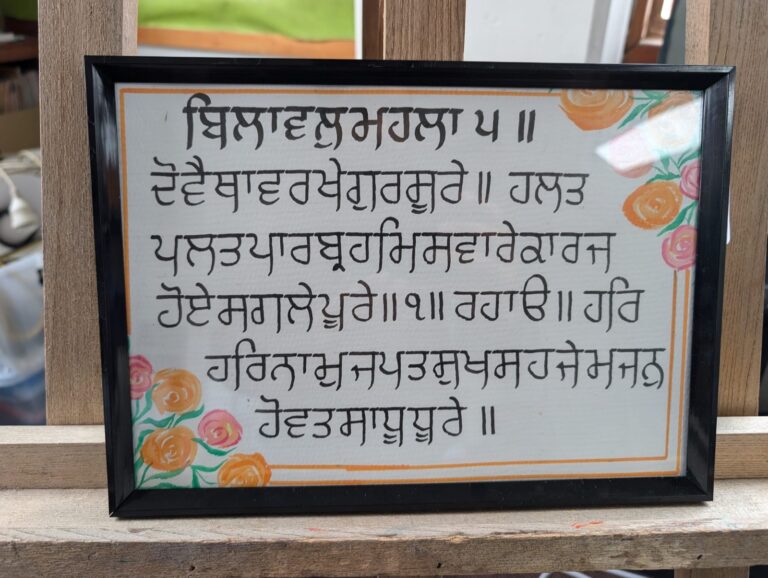 ਬਿਲਾਵਲੁਮਹਲਾ ੫ ॥
ਦੋਵੈਥਾਵਰਖੇਗੁਰਸੂਰੇ॥ ਹਲਤ
ਪਲਤਪਾਰਬ੍ਰਹਮਿਸਵਾਰੇਕਾਰਜ
ਹੋਏਸਗਲੇਪੂਰੇ॥੧॥ ਰਹਾਓ॥ ਹਰਿ
ਹਰਿਨਾਮੁਜਪਤਸੁਖਸਹਜੇਮਜਨੁ
ਹੋਵਤਸਾਧੂਧੂਰੇ ॥